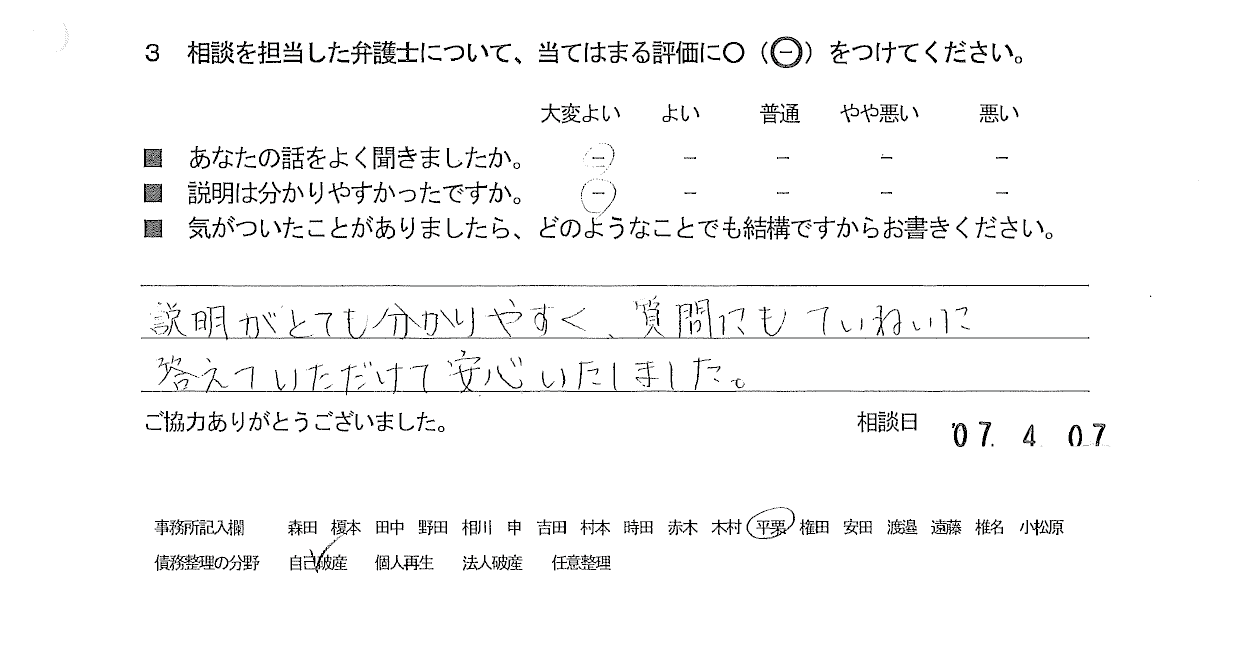 3 相談を担当した弁護士について、当てはまる評価に○（㊀）をつけてください。
大変よい よい 普通 やや悪い 悪い
■ あなたの話をよく聞きましたか。 － － － － －
■ 説明は分かりやすかったですか。 － － － － －
■ 気がついたことがありましたら、どのようなことでも結構ですからお書きください。
説明がとても分かりやすく、質問にもていねいに
答えていただけて安心いたしました。
ご協力ありがとうございました。 相談日 '07. 4 07
事務所記入欄 森田 榎本 田中 野田 相川 申 吉田 村本 時田 赤木 木村 平栗 権田 安田 渡邉 遠藤 椎名 小松原
債務整理の分野 自己破産 個人再生 法人破産 任意整理